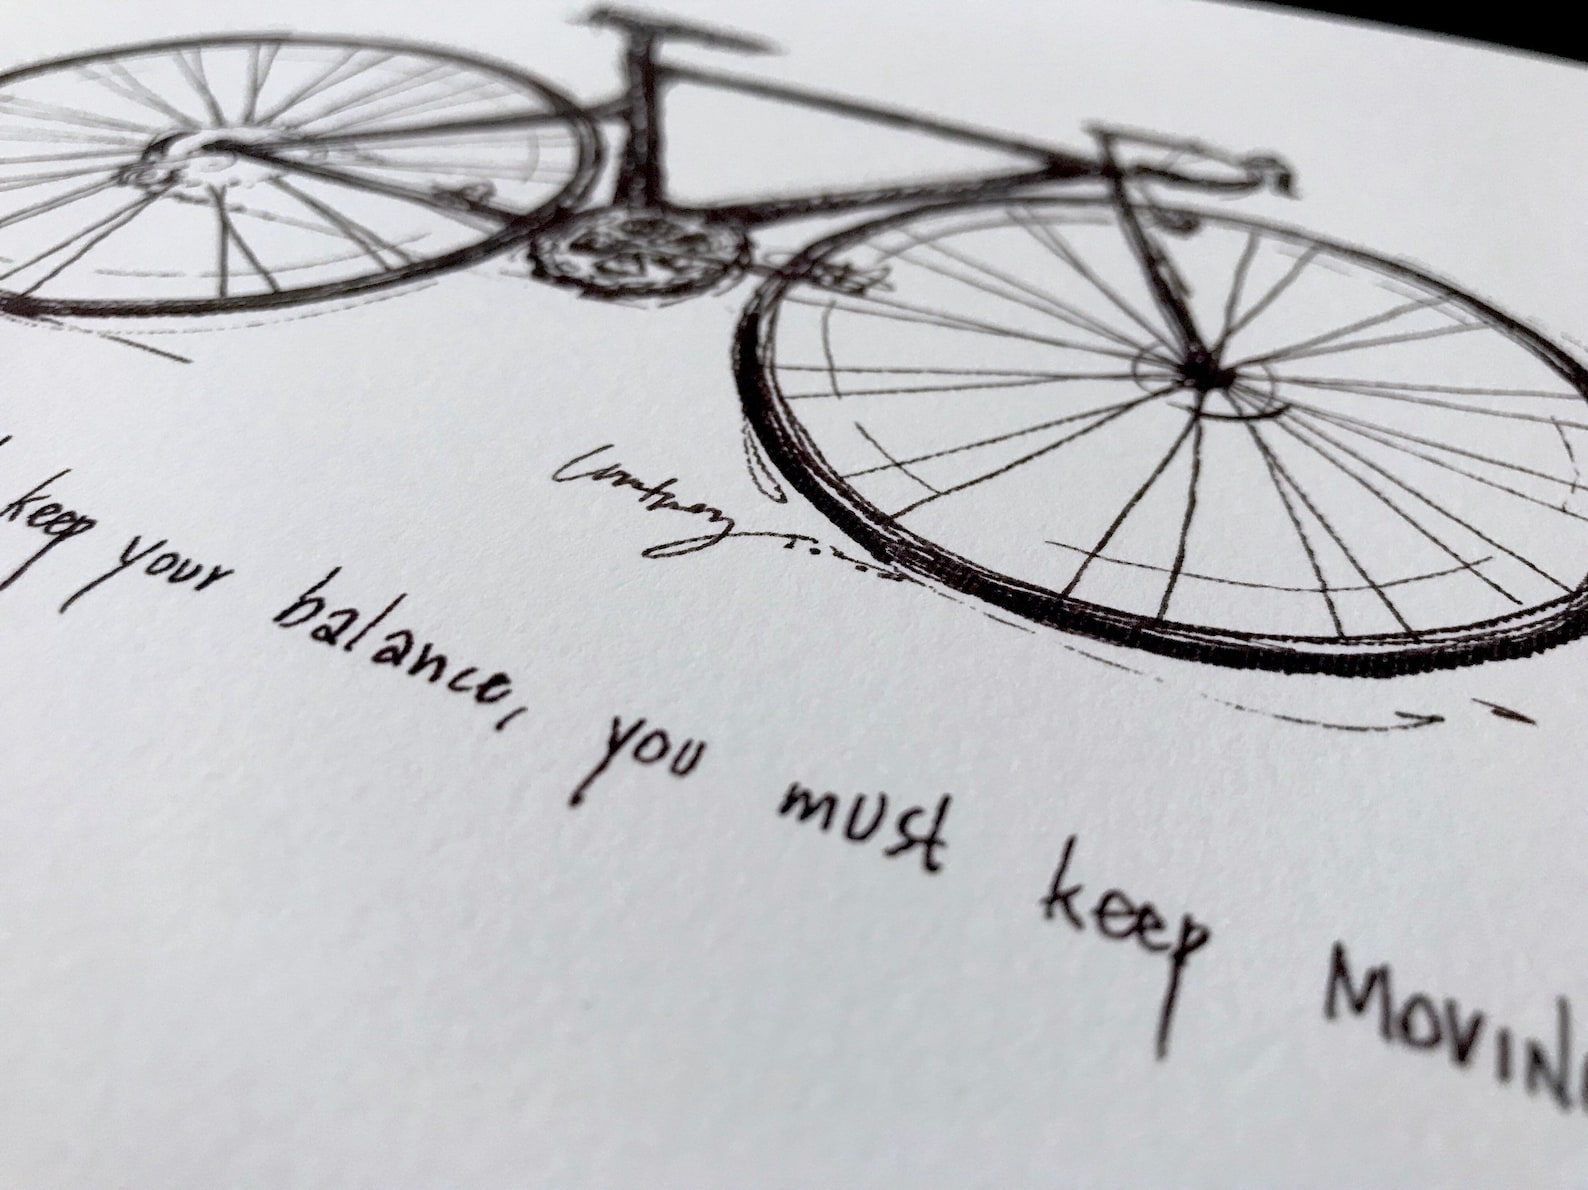 Courtney
keep your balance, you must keep MOVIN